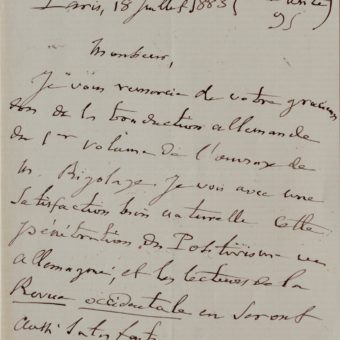 Paris, 18 Juillet 1883
95
Monsieur,
Je vous remercie de votre gracieux
don de la traduction allemande
du 1er volume de l'ouvrage de
M. Rigolage. Je vois avec une
satisfaction bien naturelle cette
pénétration du Positivisme en
Allemagne, et les lecteurs de la
Revue occidentale en seront
aussi satisfaits